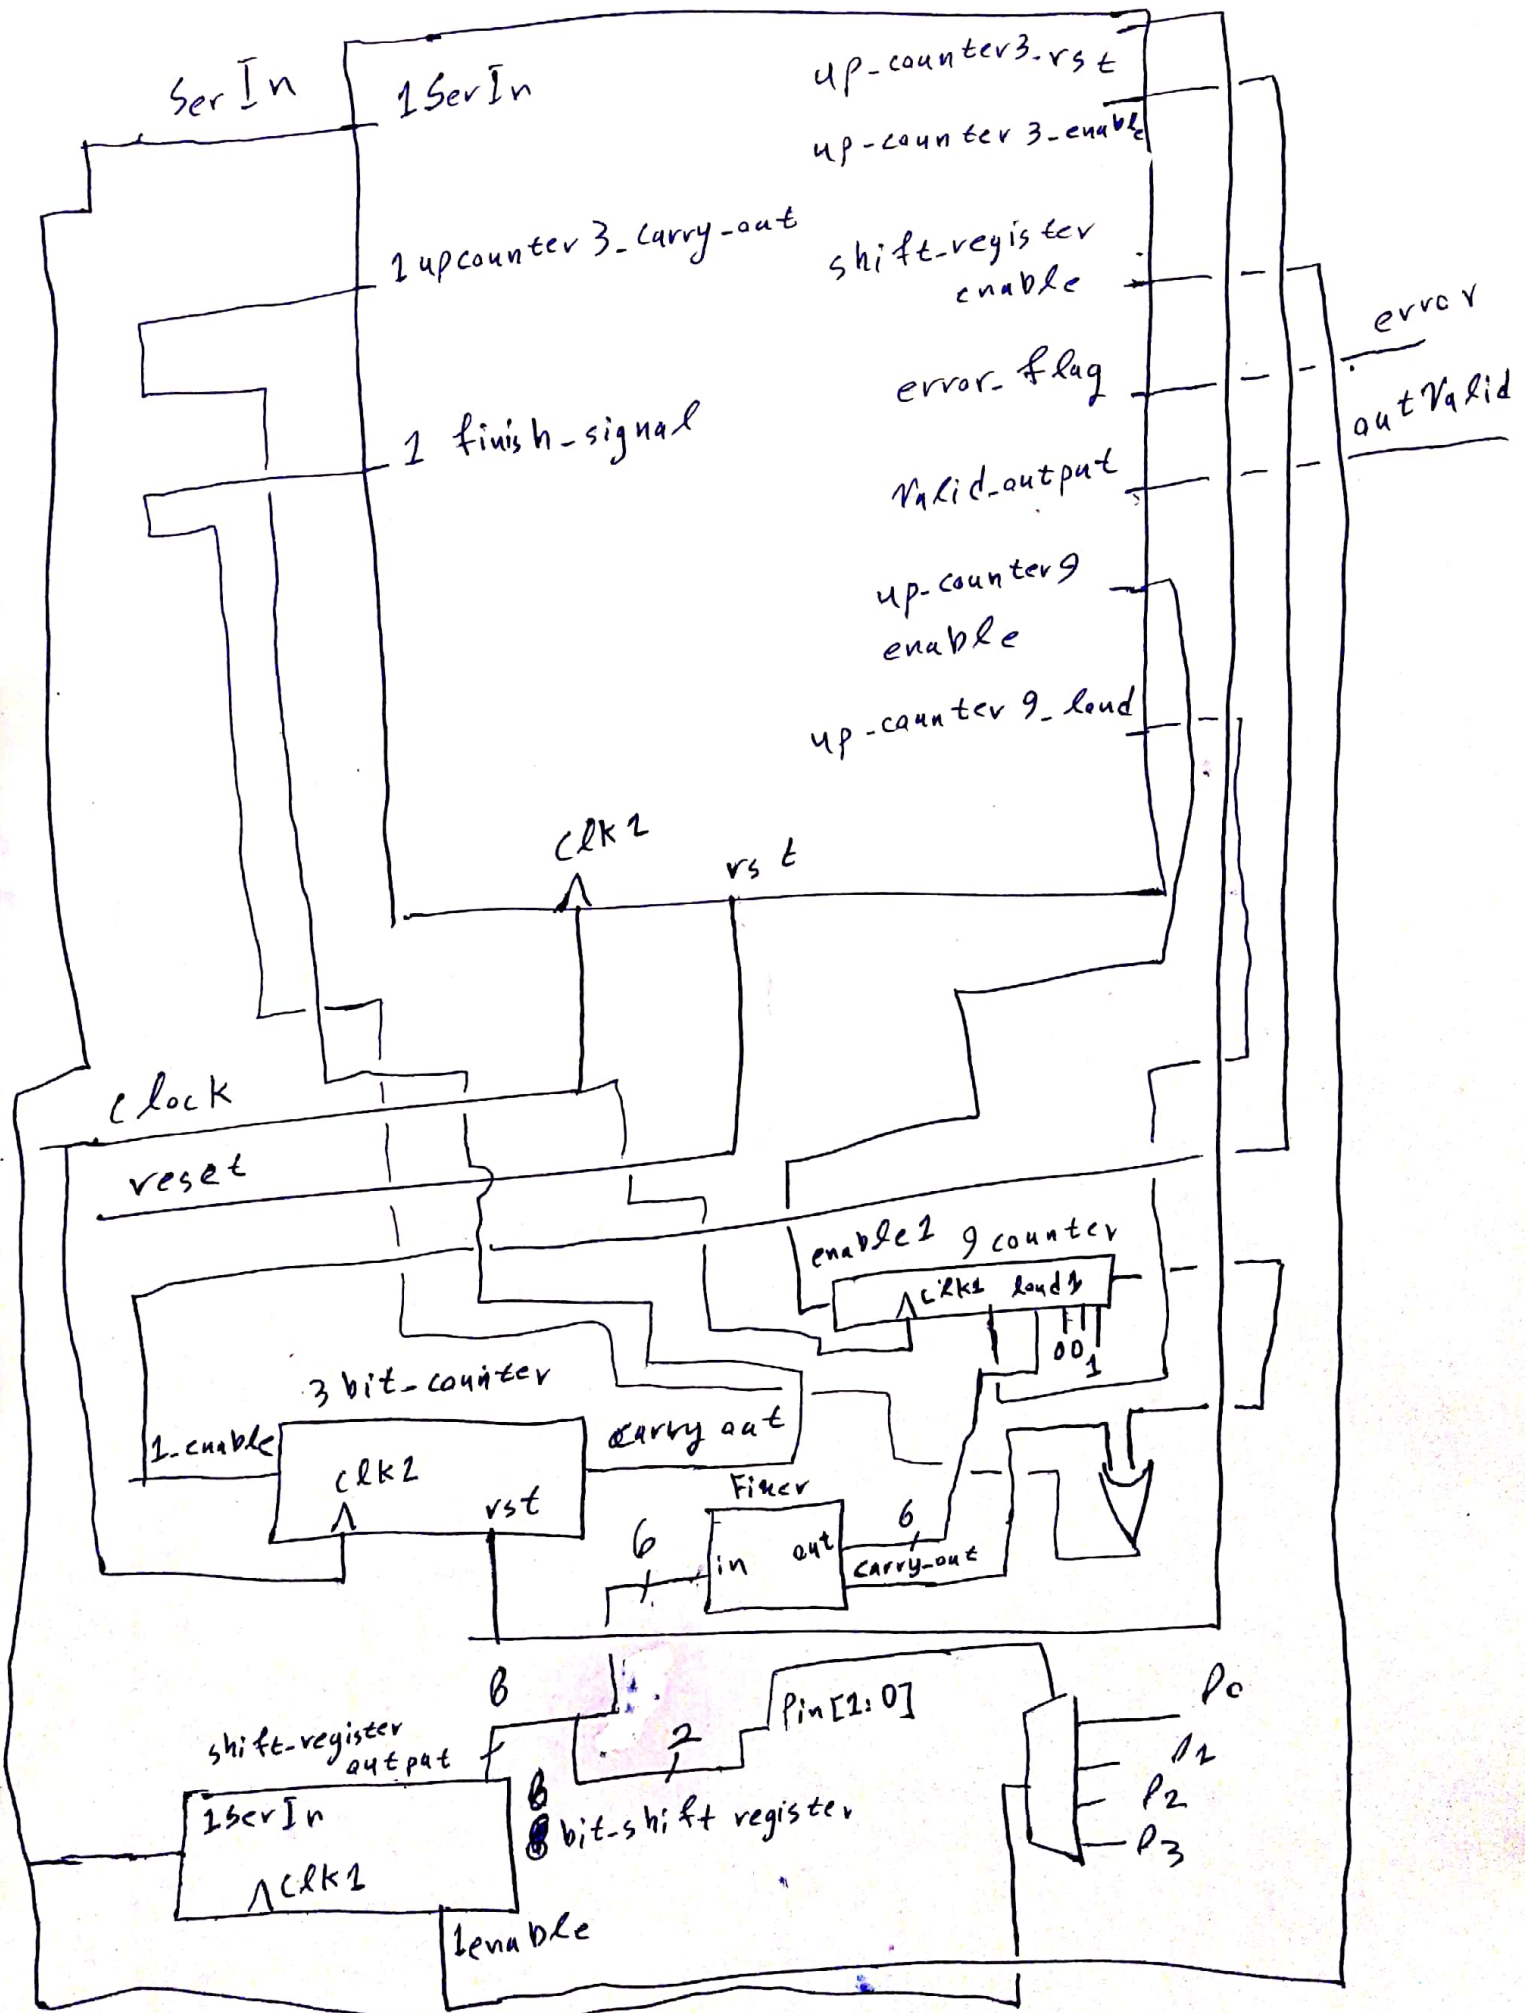 SerIn
1SerIn
up-counter3-rst
up-counter 3-enable
1 upcounter 3-carry-out
shift-register
enable
error
error-flag
outValid
1 finish-signal
Valid-output
up-counter9
enable
up-counter 9-load
clk1
rst
clock
reset
enable1
9 counter
clk1
load1
0 0 1
3 bit-counter
1-enable
carry out
clk1
rst
Fixer
6
in
out
6
carry-out
8
Pin[1:0]
P0
shift-register
output
2
P1
P2
1SerIn
8
bit-shift register
P3
clk1
1enable